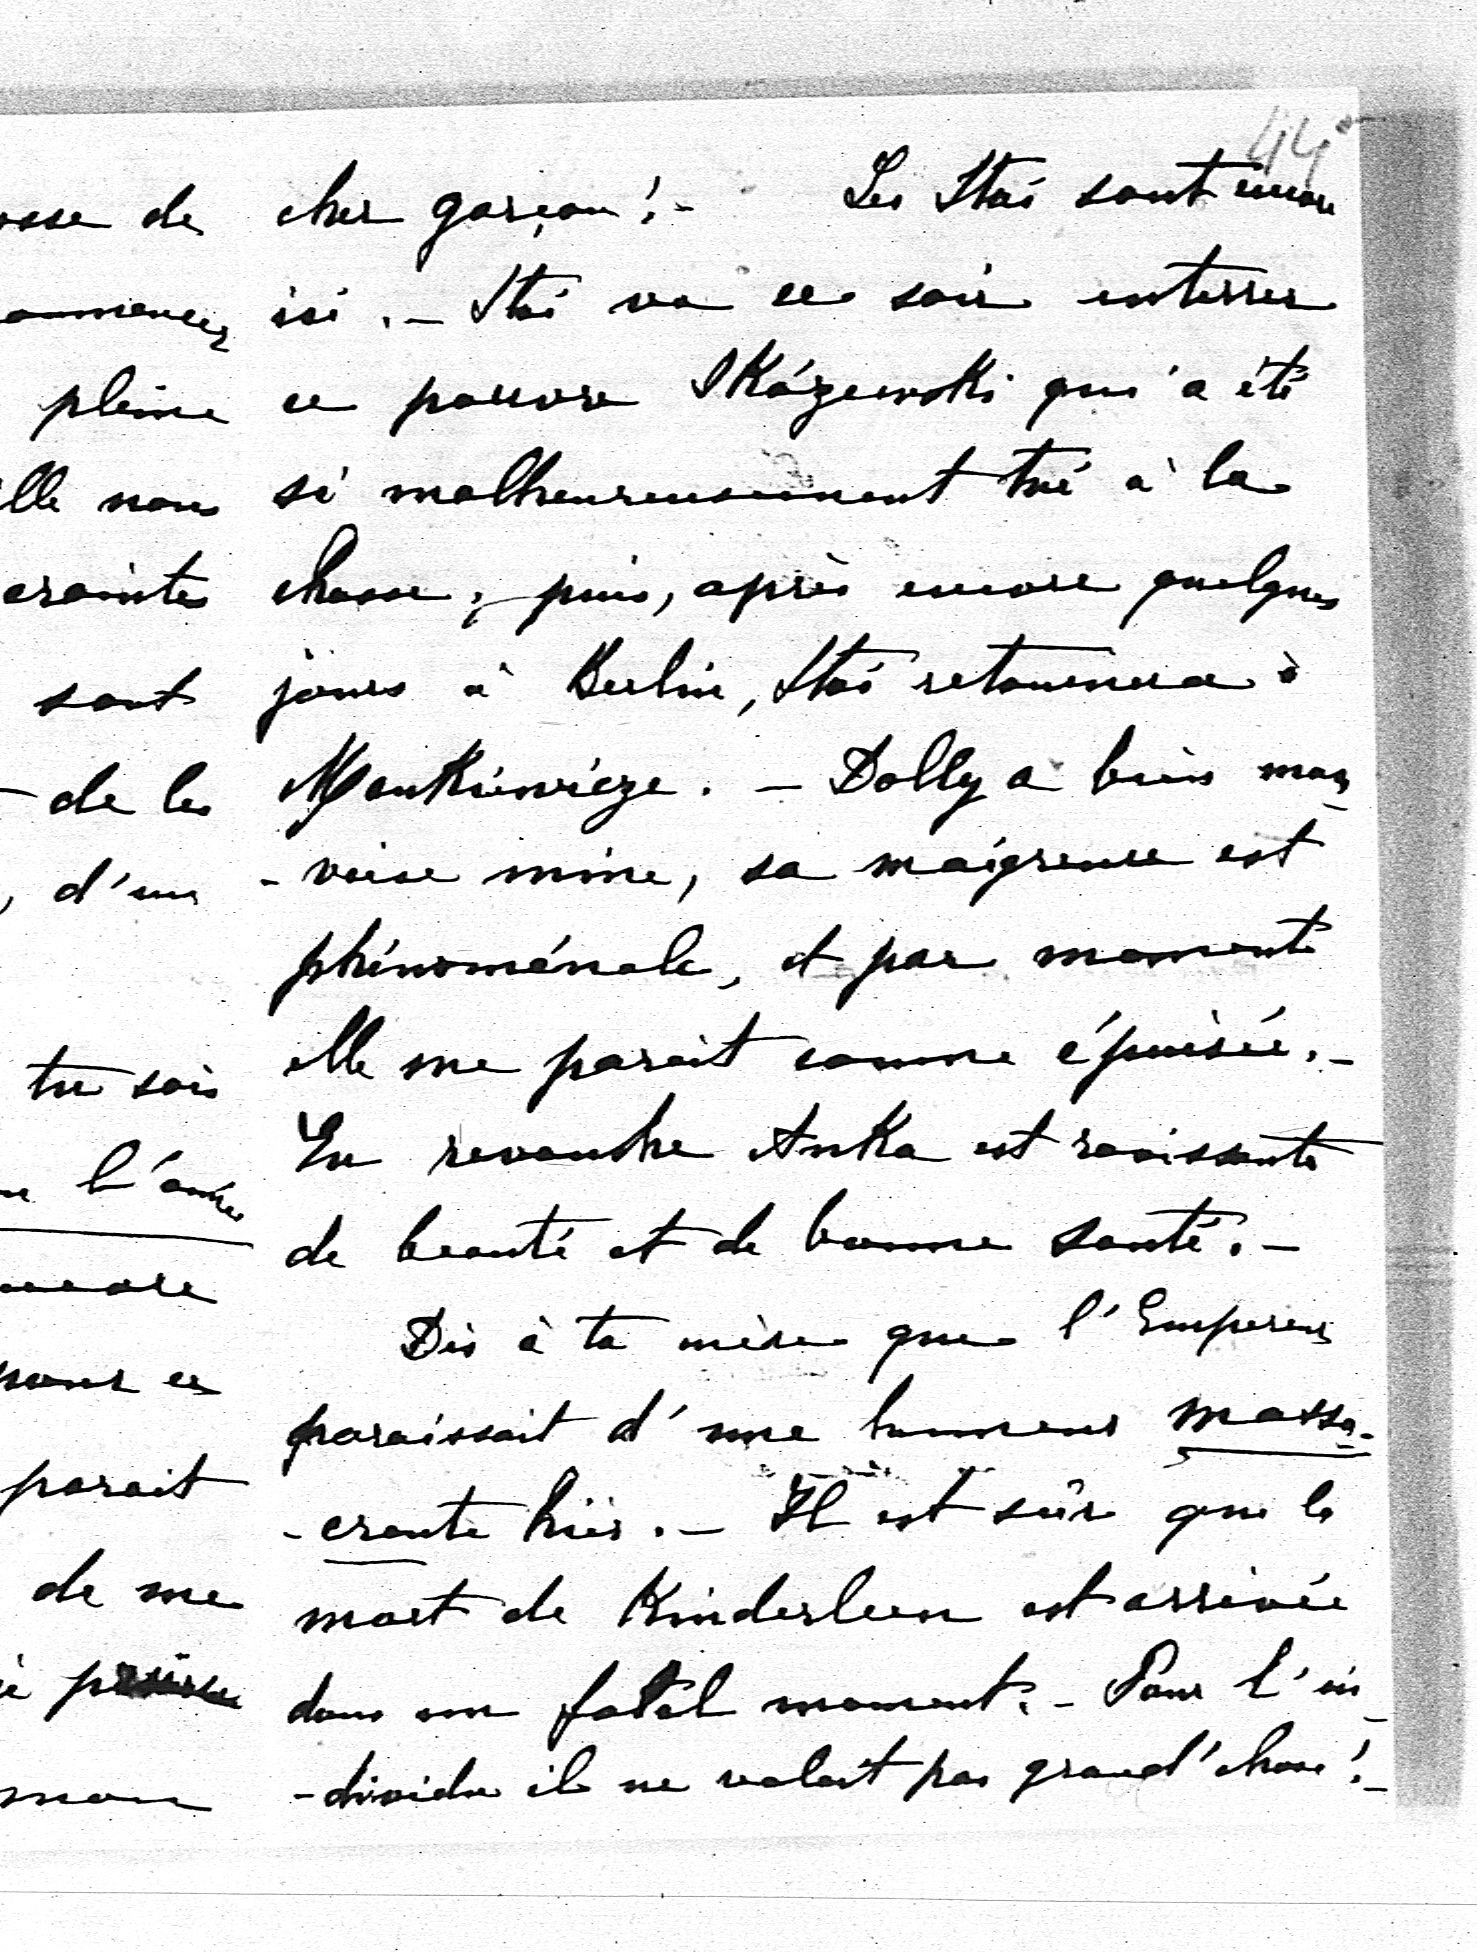 44
cher garçon! - Les Stás sont encore
ici. - Stás va ce soir enterrer
ce pauvre Skórzewski qui a été
si malheureusement tué à la
chasse; puis, après encore quelques
jours à Berlin, Stás retournera à
Mankiéwicze. - Dolly a bien mau-
-vaise mine, sa maigreur est
phénoménale, et par moment
elle me parait comme épuisée. -
En revanche Anka est ravissante
de beauté et de bonne santé. -
Dis à ta mère que l'Empereur
paraissait d'une humeur massa-
-crante hier. - Il est sûr que la
mort de Kinderleen est arrivée
dans un fatal moment. - Pour l'in-
-dividu il ne valait pas grand'chose! -
de
pleine
nous
crainte
sont
de les
, d'un
tu sais
l'année
encore
parait
de me